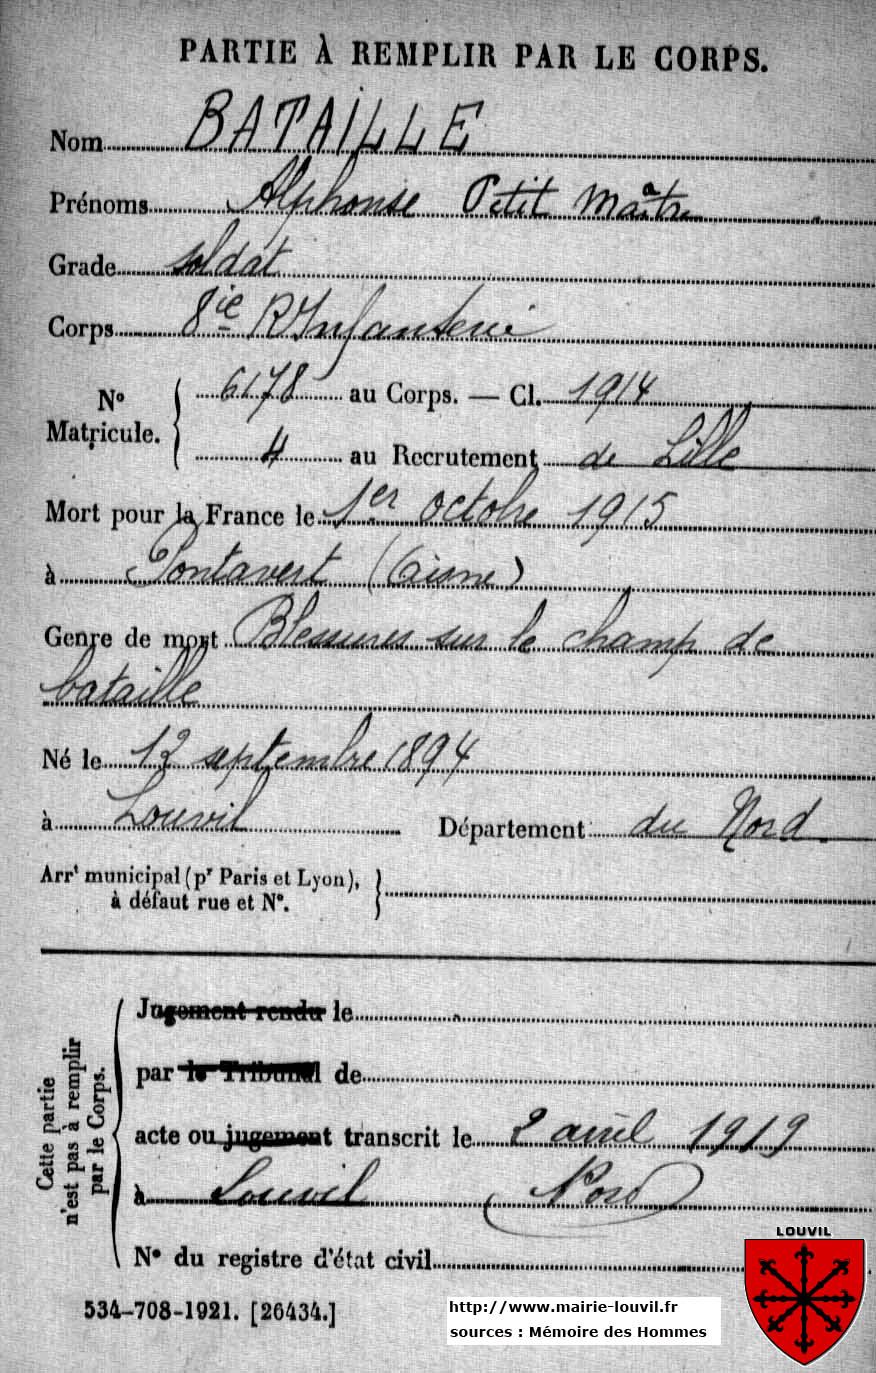 PARTIE À REMPLIR PAR LE CORPS.
Nom BATAILLE
Prénoms Alphonse Petit Maître
Grade soldat
Corps 8ie RInfanterie
No Matricule. 6178 au Corps. — Cl. 1914
4 au Recrutement de Lille
Mort pour la France le 1er octobre 1915
à Pontavert (Aisne)
Genre de mort Blessures sur le champ de
bataille
Né le 12 septembre 1894
à Louvil Département du Nord.
Arrt municipal (pr Paris et Lyon),
à défaut rue et No.
Cette partie
n'est pas à remplir
par le Corps.
Jugement rendu le
par le Tribunal de
acte ou jugement transcrit le 2 avril 1919
à Louvil Nord
No du registre d'état civil
534-708-1921. [26434.]
LOUVIL
http://www.mairie-louvil.fr
sources : Mémoire des Hommes